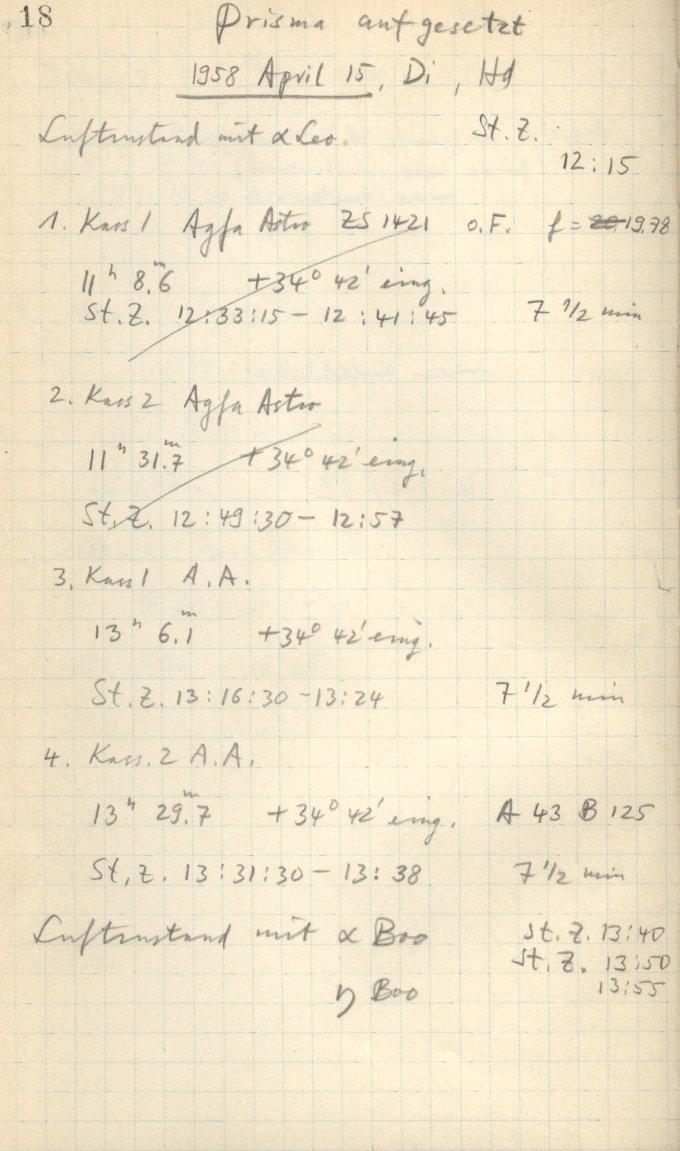 18
Prisma aufgesetzt
1958 April 15, Di, Hd
Luftzustand mit α Leo. St. Z.
12:15
1. Kass 1 Agfa Astro ZS 1421 o.F. f = 20 19.78
11ʰ 8.ᵐ6 +34° 42' eing.
St. Z. 12:33:15 – 12:41:45 7 1/2 min
2. Kass 2 Agfa Astro
11ʰ 31.ᵐ7 +34° 42' eing.
St. Z. 12:49:30 – 12:57
3. Kass 1 A.A.
13ʰ 6.ᵐ1 +34° 42' eing.
St. Z. 13:16:30 – 13:24 7 1/2 min
4. Kass. 2 A.A.
13ʰ 29.ᵐ7 +34° 42' eing. A 43 B 125
St. Z. 13:31:30 – 13:38 7 1/2 min
Luftzustand mit α Boo St. Z. 13:40
St. Z. 13:50
η Boo 13:55